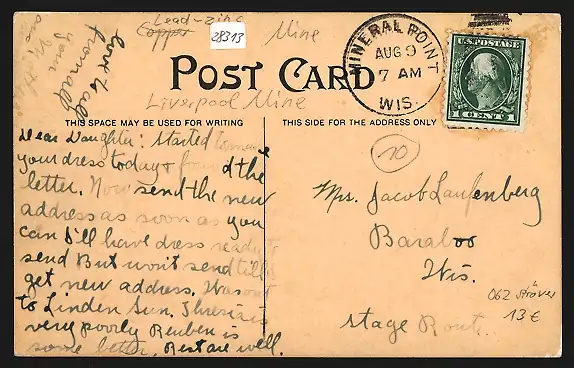 Lead-zinc
Copper Mine
28313
POST CARD
Liverpool Mine
THIS SPACE MAY BE USED FOR WRITING
THIS SIDE FOR THE ADDRESS ONLY
MINERAL POINT
AUG 9
7 AM
WIS.
U.S. POSTAGE
1 CENT 1
love to all
from all
your
Dear Daughter: Started to make
your dress today & found the
letter. Now send the new
address as soon as you
can I'll have dress ready to
send But won't send till I
get new address. Was out
to Linden Sun. Theresia is
very poorly Reuben is
some better. Rest are well.
10
Mrs. Jacob Laufenberg
Baraboo
Wis.
Stage Rout.
062 ströver
13 €